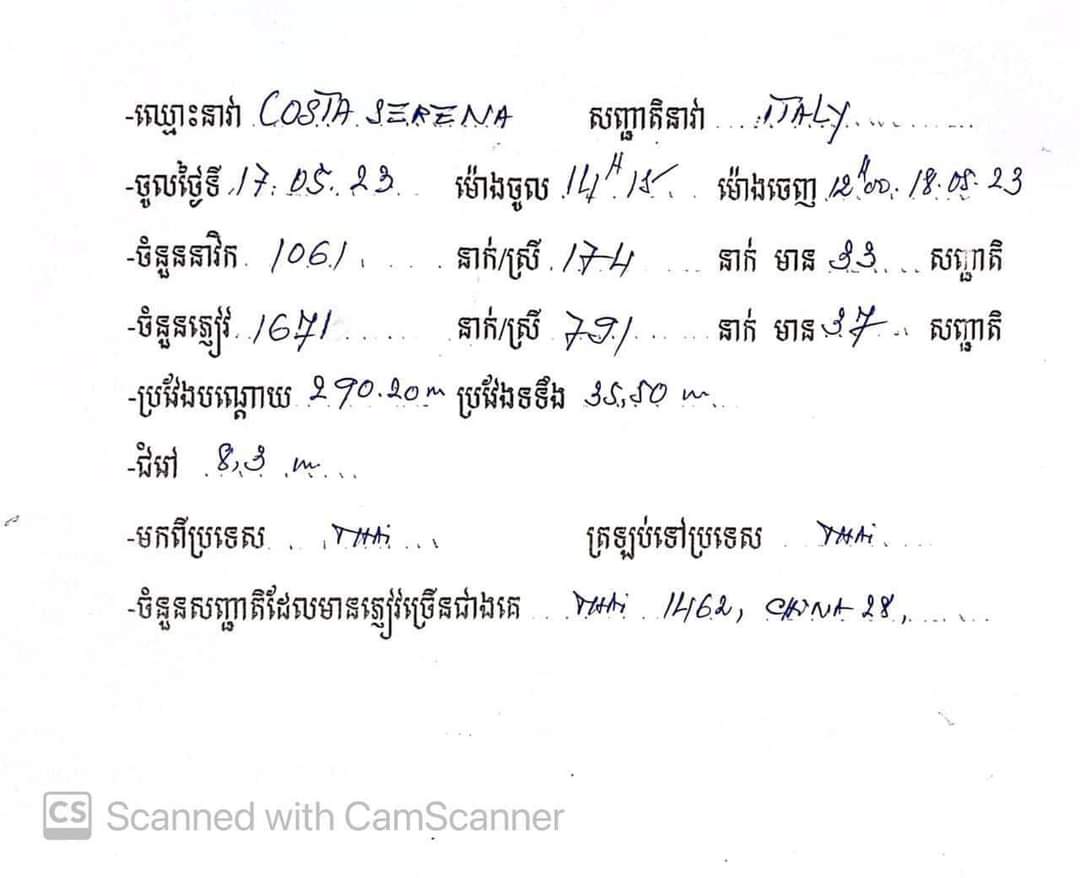 -ឈ្មោះនាវា COSTA SERENA សញ្ជាតិនាវា ITALY
-ចូលថ្ងៃទី 17. 05. 23 ម៉ោងចូល 14H15 ម៉ោងចេញ 12H00. 18.05.23
-ចំនួននាវិក 1061 នាក់/ស្រី 174 នាក់ មាន 33 សញ្ជាតិ
-ចំនួនភ្ញៀវ 1671 នាក់/ស្រី 791 នាក់ មាន 37 សញ្ជាតិ
-ប្រវែងបណ្តោយ 290.20m ប្រវែងទទឹង 35,50 m
-ជំរៅ 8,3 m
-មកពីប្រទេស THAi ត្រឡប់ទៅប្រទេស THAi
-ចំនួនសញ្ជាតិដែលមានភ្ញៀវច្រើនជាងគេ THAi 1462, CHINA 28,
CS Scanned with CamScanner